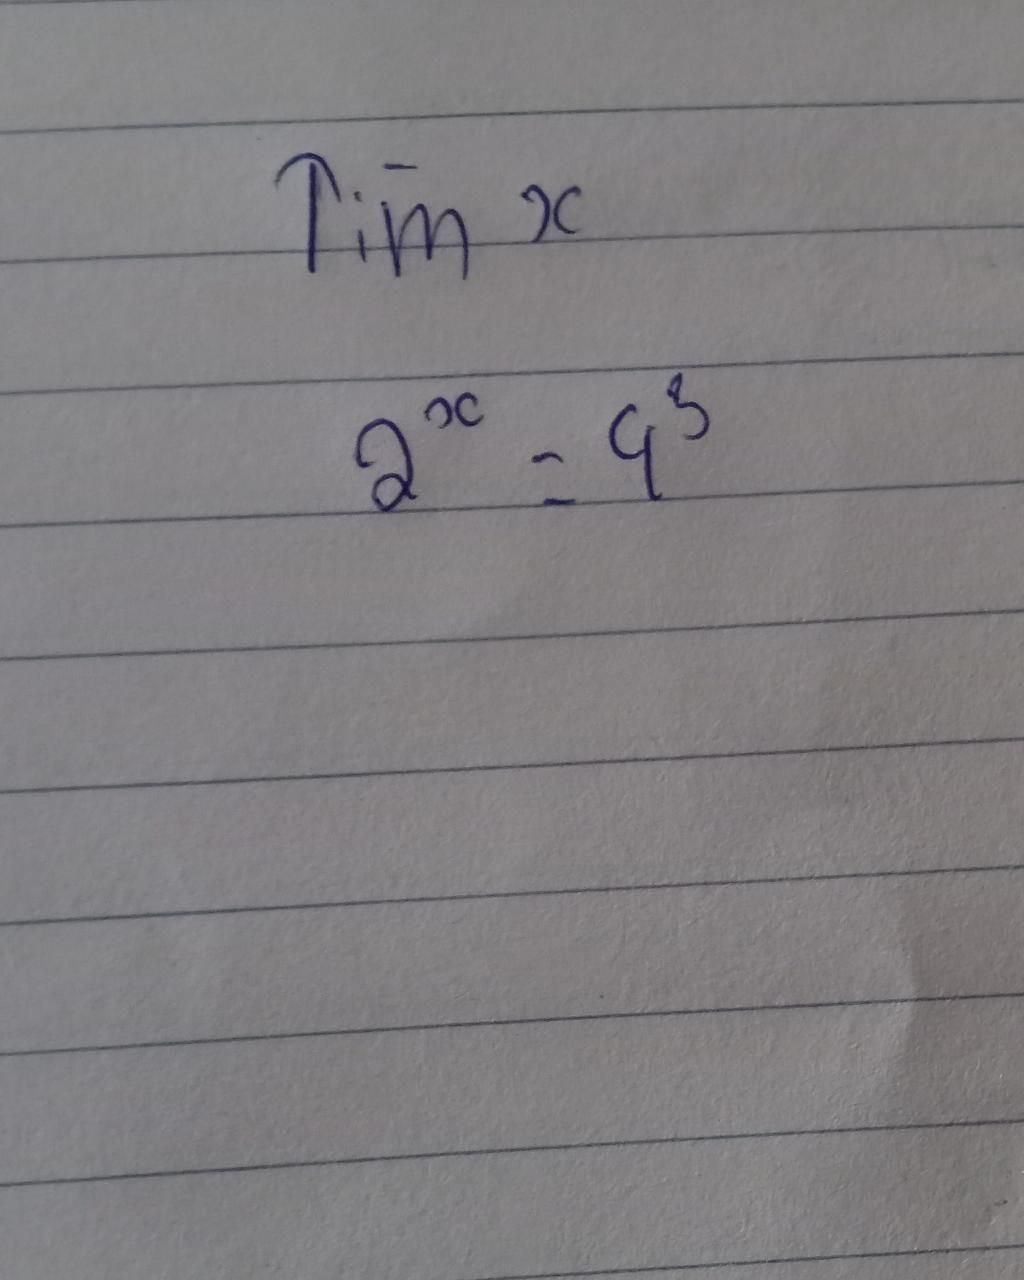 Tìm x
2^x = 4^3